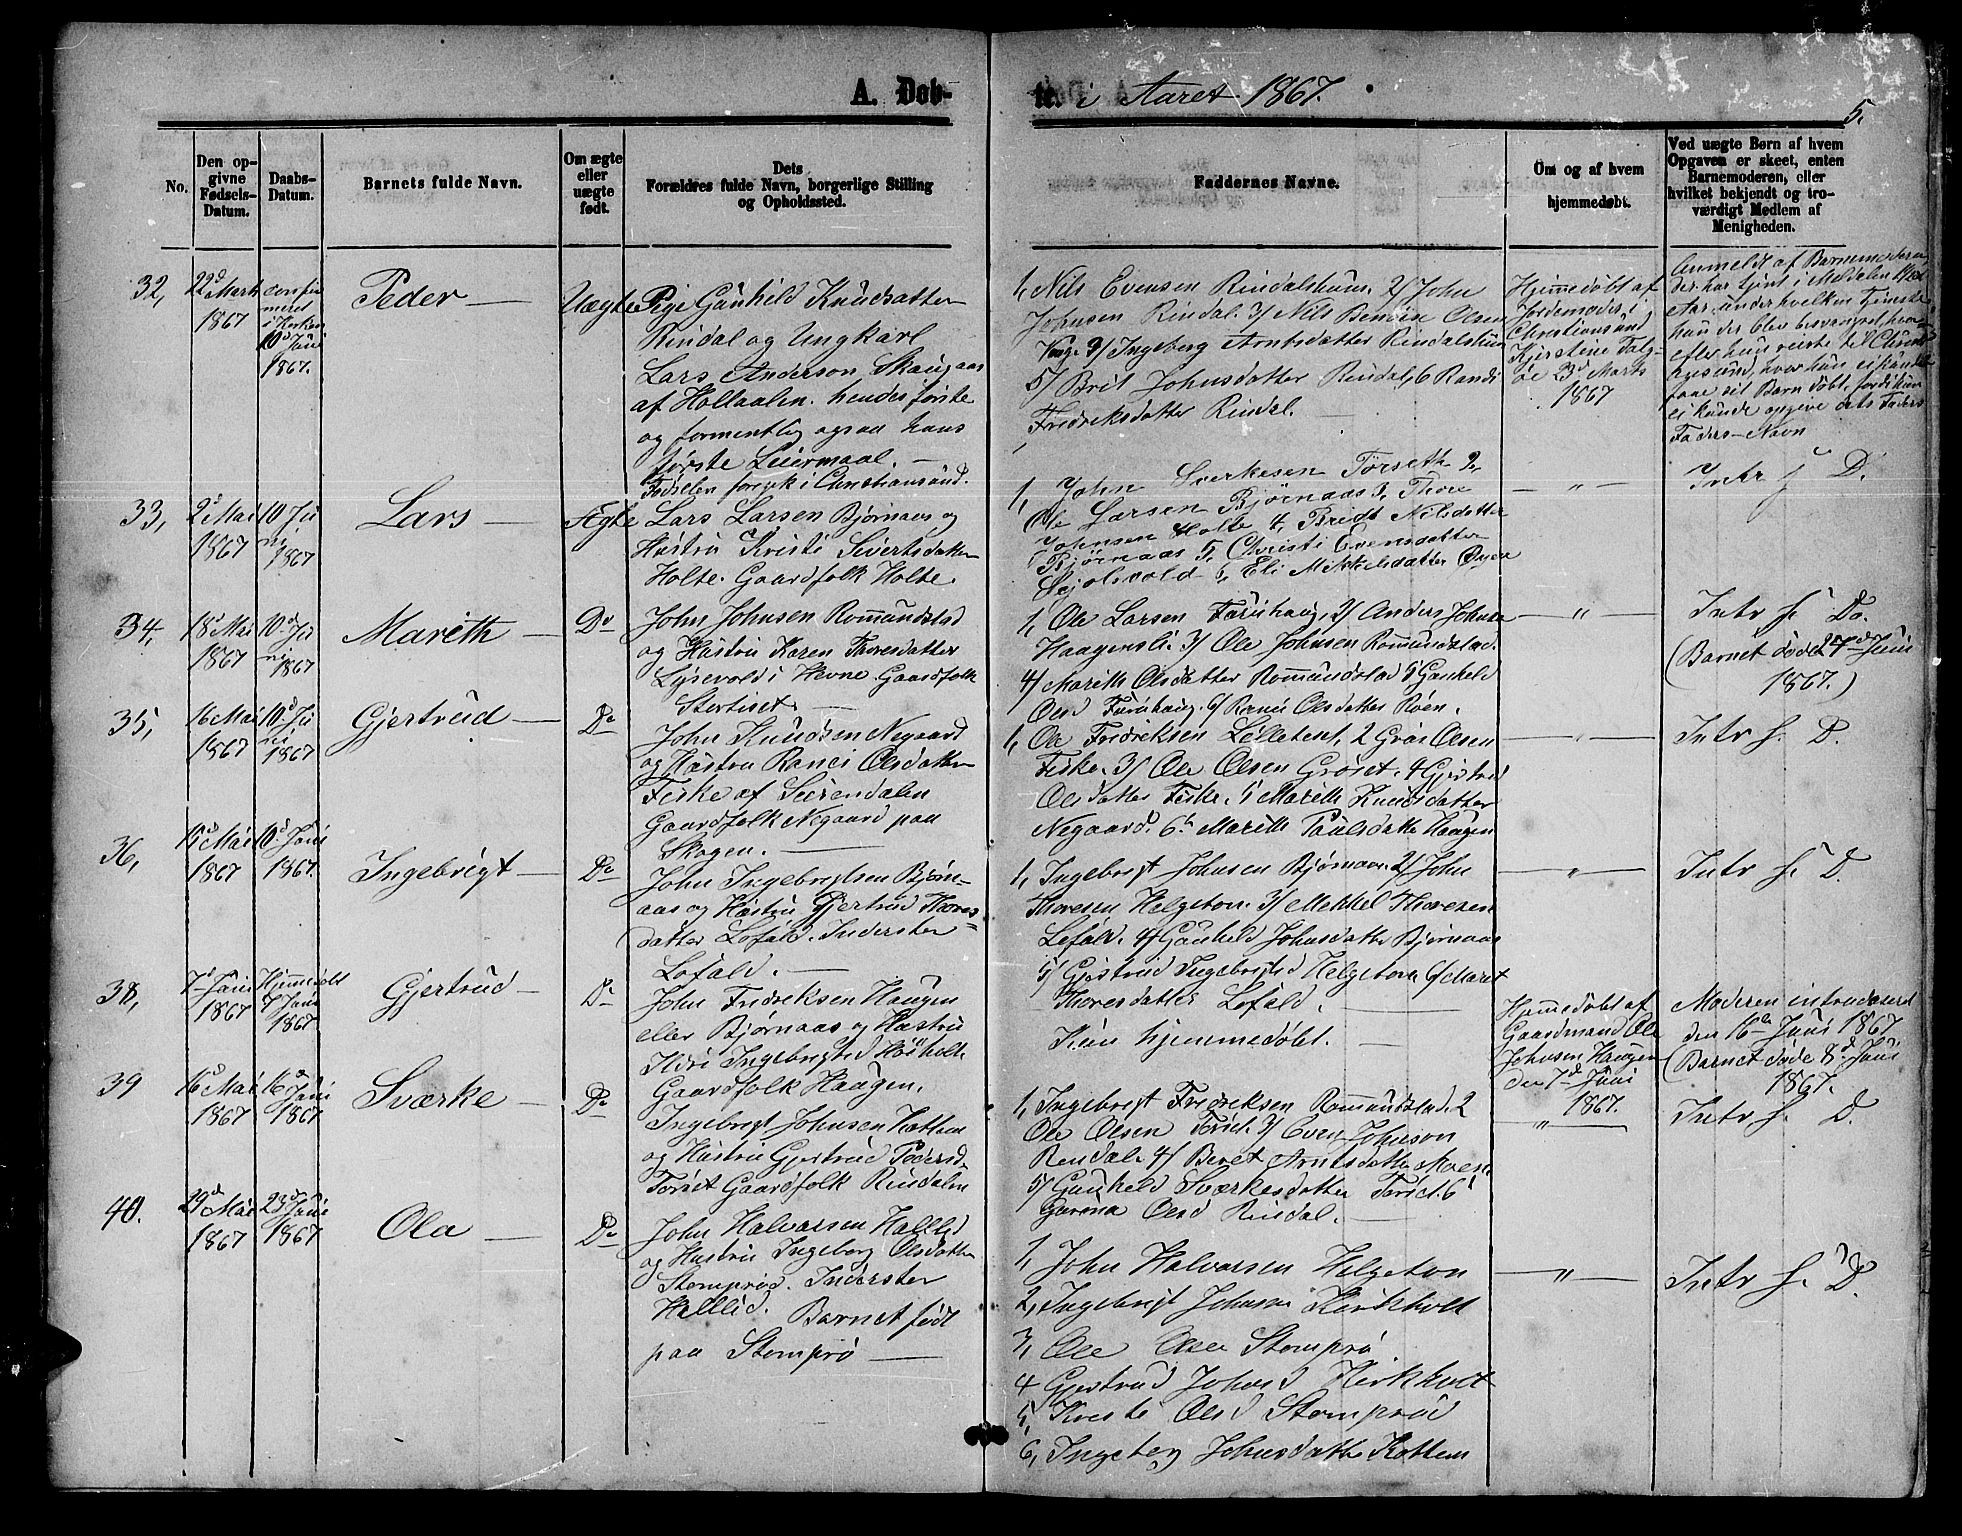 A. Døb-
te i Aaret 1867.
5.
No.
Den op-
givne
Fødsels-
Datum.
Daabs-
Datum.
Barnets fulde Navn.
Om ægte
eller
uægte
født.
Dets
Forældres fulde Navn, borgerlige Stilling
og Opholdssted.
Faddernes Navne.
Om og af hvem
hjemmedøbt.
Ved uægte Børn af hvem
Opgaven er skeet, enten
Barnemoderen, eller
hvilket bekjendt og tro-
værdigt Medlem af
Menigheden.
32,
22d Marts
1867
confir
meret
i Kirken
10d Juni
1867.
Peder
Uægte
Pige Gunhild Knudsdatter
Rindal og Ungkarl
Lars Anderson Skaugaas
af Hollaalen. hendes første
og formentlig ogsaa hans
første Leiermaal.
Fødselen foregik i Christiansund.
1, Nils Evensen Rindalshuun 2/ John
Johnsen Rindal 3/ Nils Olsen
3/ Ingeberg Arntsdatter Rindalshuun
5/ Brit Johnsdatter Rindal, 6 Randi
Fredriksdatter Rindal.
Hjemmedøbt af
Jordemoder i
Christiansund
Kjerstine
23d Marts
1867
Anmeldt af Barnemoderen
der har tjent i Meldalen
Aar, under hvilken Tjeneste
hun der blev besvangret, hvor-
efter hun reiste til Christi-
ansund, hvor hun ei kunde
faae sit Barn døbt, fordi hun
ei kunde opgive dets Faders
Faders-Navn
33,
2d Mai
1867
10d Ju
ni
1867
Lars
Ægte
Lars Larsen Bjørnaas og
Hustru Kristi Sivertsdatter
Holte. Gaardfolk Holte.
1, John Sverkesen Tørseth 2,
Ole Larsen Bjørnaas 3, Thore
Johnsen Holte 4, Bridt Nilsdatter
Bjørnaas 5, Christi Evensdatter
6, Eli Mikkelsdatter
"
Intr f D.
34,
18d Mai
1867
10d Ju
ni
1867
Marith
Do
John Johnsen Rommundstad
og Hustru Karen Thoresdatter
Lysevold i Hevne. Gaardfolk
Stortiset
1, Ole Larsen Furuhaug, 2/ Anders Johnse
Haagensli 3/ Ole Johnsen Rommundstad.
4/ Marith Olsdatter Rommundstad 5/ Gunhild
Olsd Furuhaug. 6/ Ranei Olsdatter Røen.
"
Intr f. Do.
(Barnet døde 24de Juni
1867.)
35,
16 Mai
1867
10d Ju
ni
1867
Gjertrud
Do
John Knudsen Negaard
og Hustru Ranei Olsdatter
Fiske af Surendalen
Gaardfolk Negaard paa
Skogen.
1, Ole Fredriksen Lilletent, 2 Gros Olsen
Fiske. 3/ Ole Olsen Grøset. 4 Gjertrud
Olsdatter Fiske. 5 Marith Knudsdatter
Negaard. 6 Marith Paulsdatte Haugen
"
Intr f. D.
36,
15d Mai
1867
10d Juni
1867.
Ingebrigt
Do
John Ingebrigtsen Bjørn-
aas og Hustru Gjertrud Thores-
datter Lofald. Inderster
Lofald.
1, Ingebrigt Johnsen Bjørnaas 2/ John
Thoresen Helgeton. 3/ Mekkel Thoresen
Lofald. 4/ Gunhild Johnsdatter Bjørnaas
5/ Gjertrud Ingebrigtsd Helgeton 6/ Maret
Thoresdatter Lofald.
"
Intr f. D.
38,
7d Juni
1867
Hjemmedøbt
7 Juni
1867
Gjertrud
Do
John Fredriksen Haugen
eller Bjørnaas og Hustru
Ildri Ingebrigtsd
Gaardfolk Haugen.
Kun hjemmedøbt.
Hjemmedøbt af
Gaardmand Ole
Johnsen Haugen
den 7d Juni
1867.
Moderen introduceret
den 16de Juni 1867
(Barnet døde 8d Juni
1867.
39
16d Mai
1867
16d Juni
1867
Sværke
Do
Ingebrigt Johnsen Kattem
og Hustru Gjertrud Pedersd.
Tørset Gaardfolk Rindalen
1, Ingebrigt Fredriksen Rommundstad. 2
Ole Olsen Tørset. 3/ Even Johnson
Rindal. 4/ Beret Arntsdatter Moen
5/ Gunhild Sværkesdatter Tørset. 6
Olsd Rindal.
"
Intr f. D.
40.
29d Mai
1867
23d Juni
1867
Ola
Do
John Halvorsen Helllid
og Hustru Ingeborg Olsdatter
Stomprød. Inderster
Helllid. Barnet født
paa Stomprø
1, John Halvorsen Helgeton
2, Ingebrigt Johnsen Kirkholt
3, Ole Olsen Stomprø
4 Gjertrud Johnsd Kirkholt
5, Kristi Olsd Stomprød
6, Ingeberg Johnsdatte Kattem
"
Intr f. D.